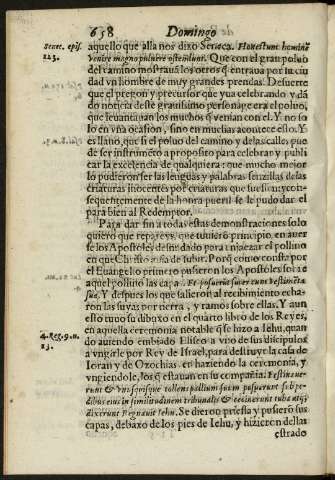 658 Domingo
Senec. epist.
123.
aquello que alla nos dixo Seneca. Honestum hominē
venire magno pulvere ostendunt. Que con el gran poluo
del camino mostrauā los otros q̃ entraua por su ciu
dad vn hombre de muy grandes prendas. De suerte
que el pregon y precursor que yua celebrando y dā
do noticia deste grauissimo personage era el poluo,
que leuantauan los muchos q̃ venian con el. Y no so
lo en vna ocasion, sino en muchas acontece esto. Y
es llano, que si el poluo del camino y de las calles, pue
de ser instrumēto a proposito para celebrar y publi
car la excelencia de qualquiera: que mucho mejor
lo pudieron ser las lenguas y palabras senzillas de las
criaturas inocentes por criaturas que fuessen: y con-
sequentemente de la honra pueril se le pudo dar el
para bien al Redemptor.
Para dar fin a todas estas demonstraciones solo
quiero que repareys, que tuuierō principio, en auer
se los Apostoles desnudado para enjaezar el pollino
en que Christo auia de subir. Porq̃ como consta por
el Euangelio primero pusieron los Apostoles sobre
aquel pollino las capas. Et posuerūt super eum vestimēta
sua. Y despues los que salieron al recebimiento echa-
ron las suyas por tierra, y ramos sobre ellas. Y aun
esto tuuo su dibuxo en el quarto libro de los Reyes,
4. Reg. 9. n.
13.
en aquella ceremonia notable q̃ se hizo a Iehu, quan
do auiendo embiado Eliseo a vno de sus discipulos
a vngirle por Rey de Israel, para destruyr la casa de
Ioran y de Ozochias, en haziendo la ceremonia, y
vngiendole, los q̃ estauan en su compañia. Festinaue-
runt & vnusquisque tollens pallium suum posuerunt sub pe-
dibus eius in similitudinem tribunalis & cecinerunt tuba atq;
dixerunt Regnauit Iehu. Se dieron priessa y pusierō sus
capas, debaxo de los pies de Iehu, y hizieron dellas
estrado